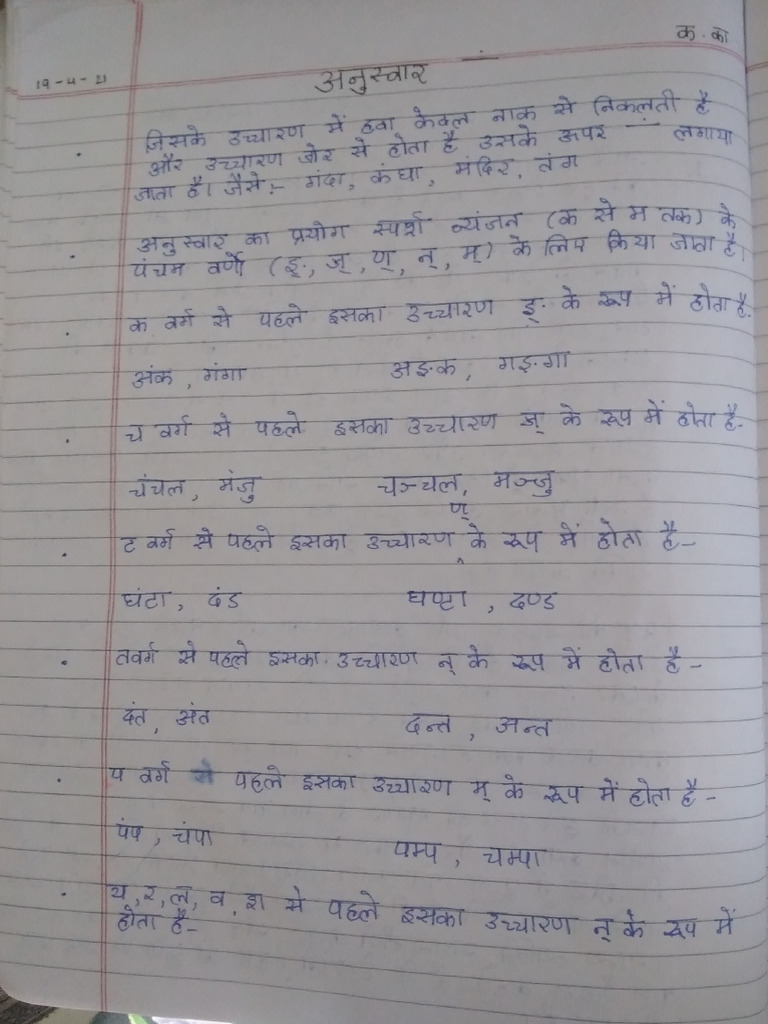 क. का
19-4-21
अनुस्वार
जिसके उच्चारण में हवा केवल नाक से निकलती है
और उच्चारण जोर से होता है उसके ऊपर -ं- लगाया
जाता है। जैसे:- गंदा, कंघा, मंदिर, तंग
अनुस्वार का प्रयोग स्पर्श व्यंजन (क से म तक) के
पंचम वर्णों (ङ्, ञ्, ण्, न्, म्) के लिए किया जाता है।
क वर्ग से पहले इसका उच्चारण ङ् के रूप में होता है-
अंक, गंगा अङ्क, गङ्गा
च वर्ग से पहले इसका उच्चारण ञ् के रूप में होता है-
चंचल, मंजु चञ्चल, मञ्जु
ट वर्ग से पहले इसका उच्चारण ण् के रूप में होता है-
घंटा, दंड घण्टा, दण्ड
तवर्ग से पहले इसका उच्चारण न् के रूप में होता है-
दंत, अंत दन्त, अन्त
प वर्ग से पहले इसका उच्चारण म् के रूप में होता है-
पंप, चंपा पम्प, चम्पा
य, र, ल, व, श से पहले इसका उच्चारण न् के रूप में
होता है-